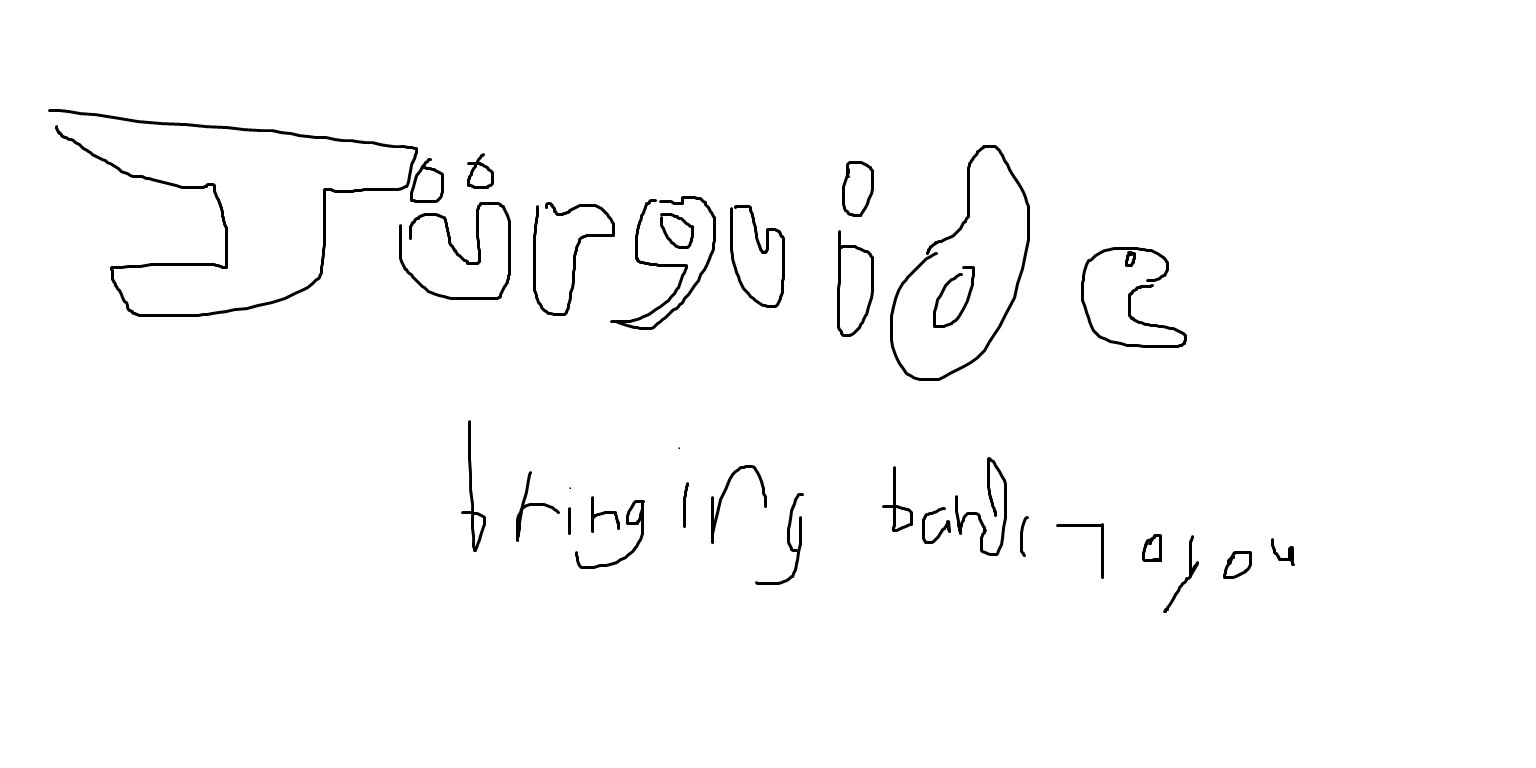 Jürguide
bringing To you